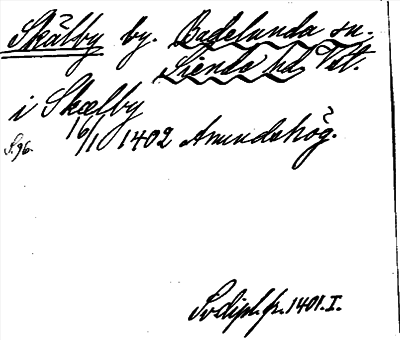 Skälby by. Badelunda sn.
Siende hd Vstl.
i Skælby
S. 96. 16/1 1402 Anundahög.
Sv. dipl. fr. 1401. I.